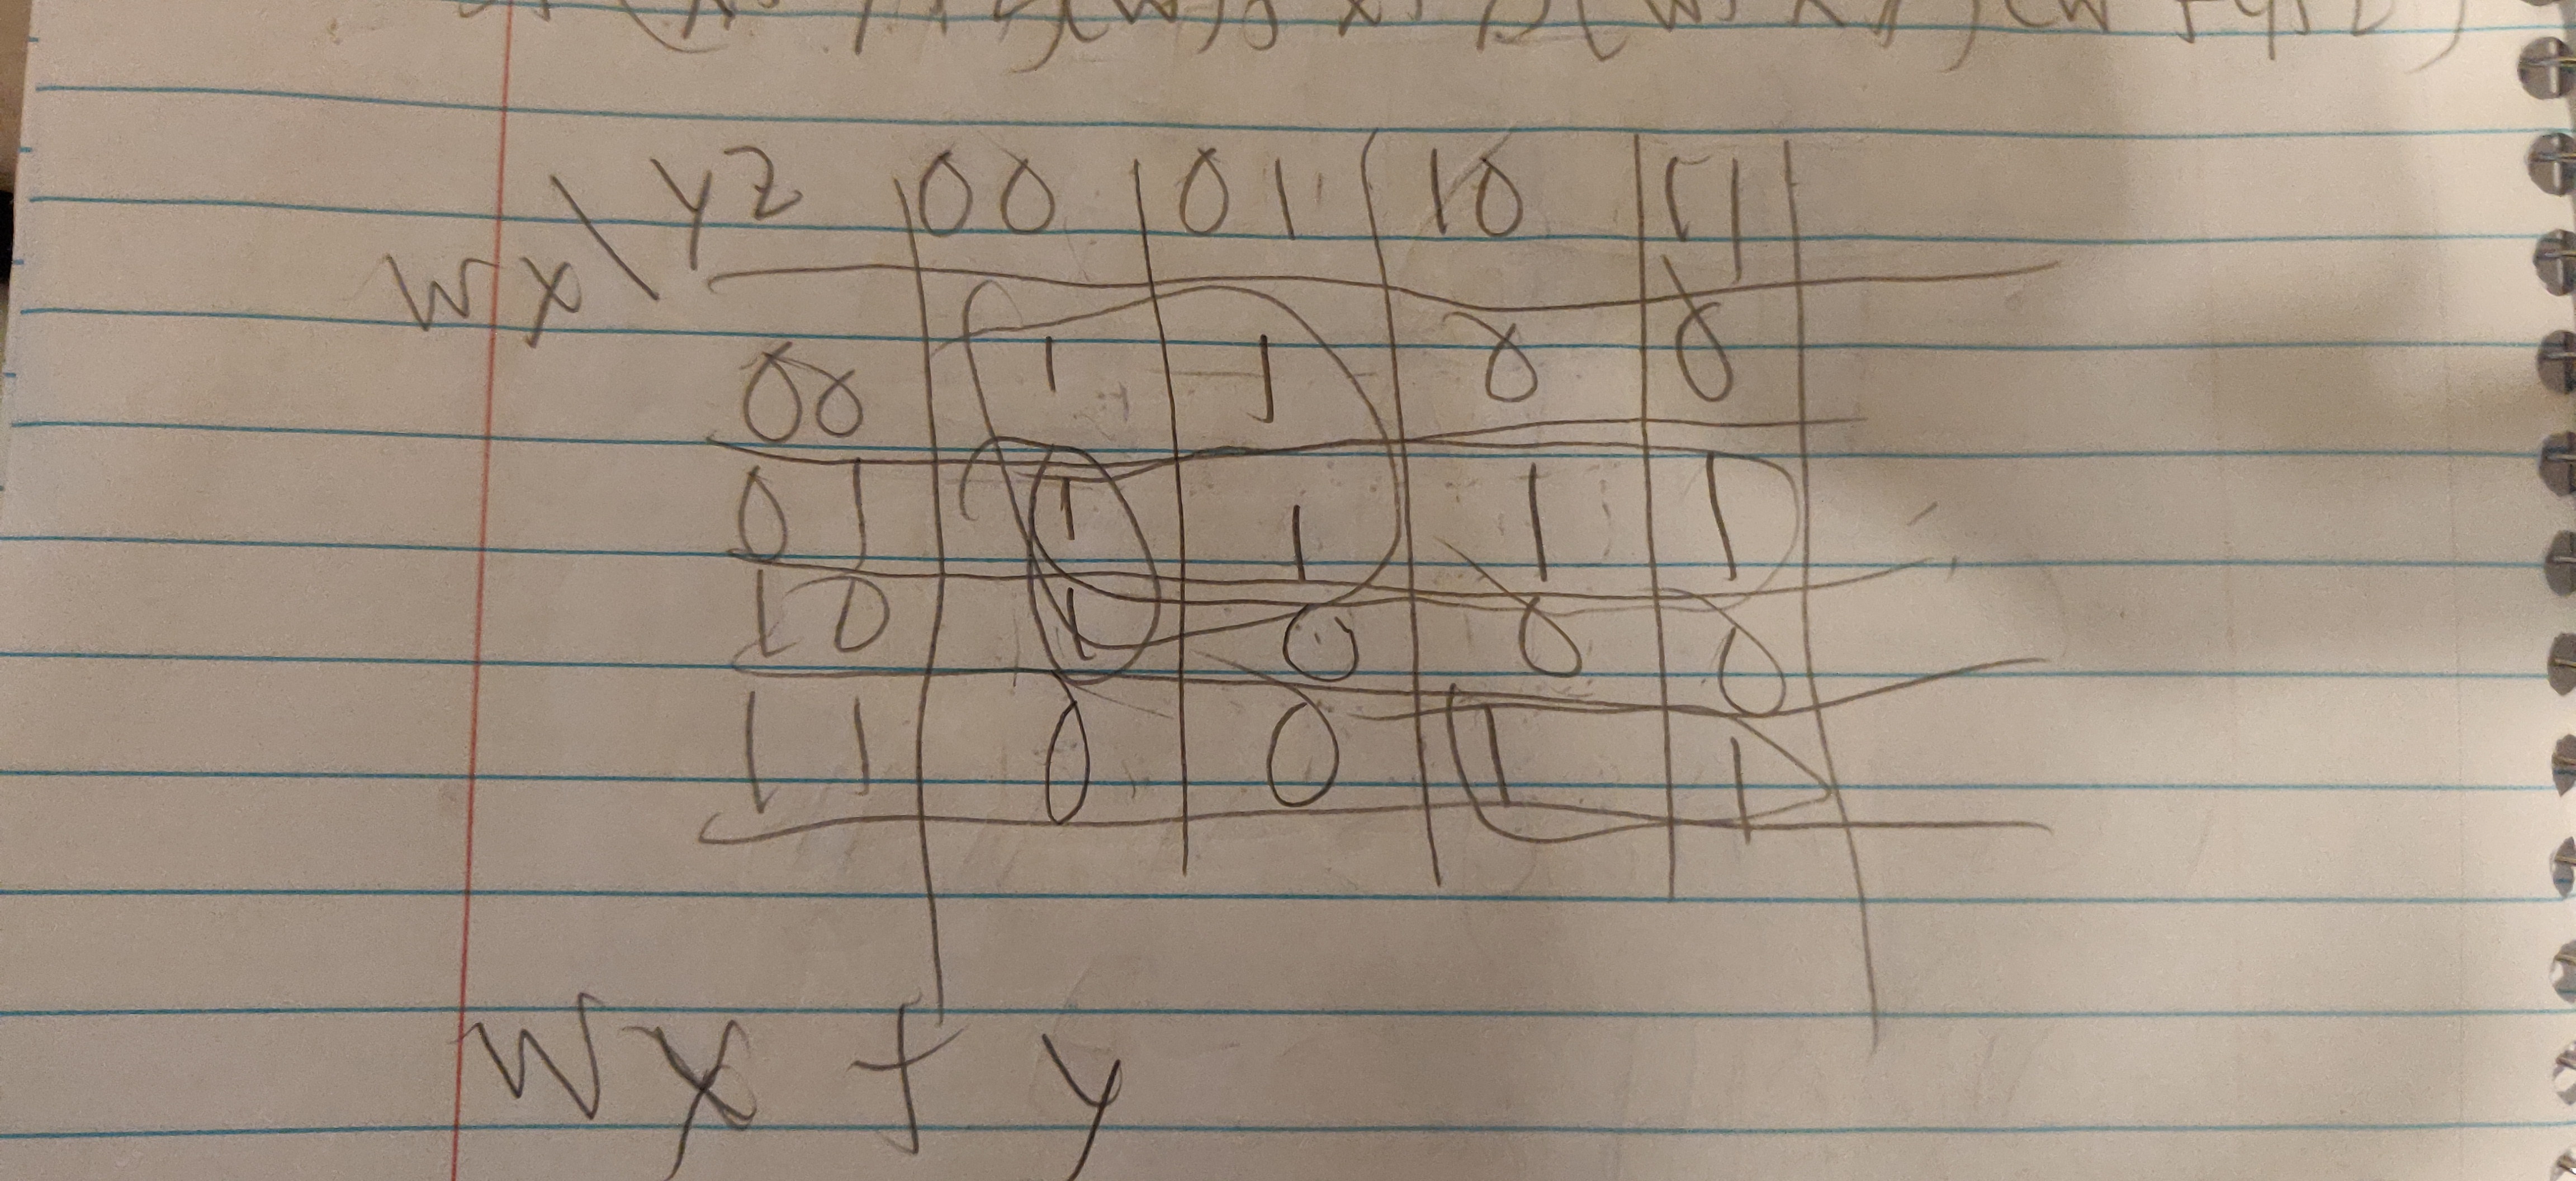 wx\yz 00 01 10 11
00 1 1 0 0
01 1 1 1 1
10 1 0 0 0
11 0 0 1 1
wx + y